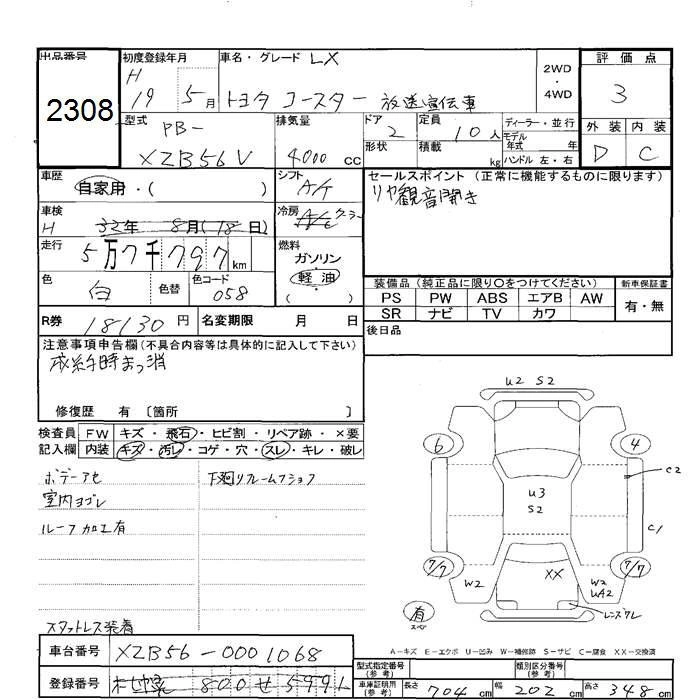 出品番号
2308
初度登録年月
H
19 5月
車名・グレード LX
トヨタ コースター 放送宣伝車
2WD
・
4WD
評価点
3
外装 内装
D C
型式 PB-
XZB56V
排気量
4000 cc
ドア 2
形状
定員 10人
積載 kg
ディーラー・並行
モデル
年式 年
ハンドル 左・右
車歴
自家用・( )
シフト
A/T
車検
H 年 8月(18日)
冷房
A/C クーラー
走行
5万7千797km
燃料
ガソリン・
軽油
( )
色
白
色替
色コード
058
R券 18130円
名変期限 月 日
セールスポイント (正常に機能するものに限ります)
リヤ観音開き
装備品(純正品に限り○をつけてください)
新車保証書
PS PW ABS エアB AW
有・無
SR ナビ TV カワ
後日品
注意事項申告欄(不具合内容等は具体的に記入して下さい)
修復歴 有 〔箇所 〕
検査員 FW キズ・飛石・ヒビ割・リペア跡・×要
記入欄 内装 キズ・汚レ・コゲ・穴・スレ・キレ・破レ
ボデーアセ
室内ヨゴレ
ルーフ加工有
スタットレス装着
U2 S2
6
4
C2
U3
S2
C1
7/7
7/7
W2
XX
W2
UA2
有
スペア
A-キズ E-エクボ U-凹み W-補修跡 S-サビ C-腐食 XX-交換済
車台番号 XZB56-0001068
登録番号 800せ5991
型式指定番号
(参考)
類別区分番号
(参考)
車庫証明用
(参考)
長さ 704cm 幅 202cm 高さ 348cm